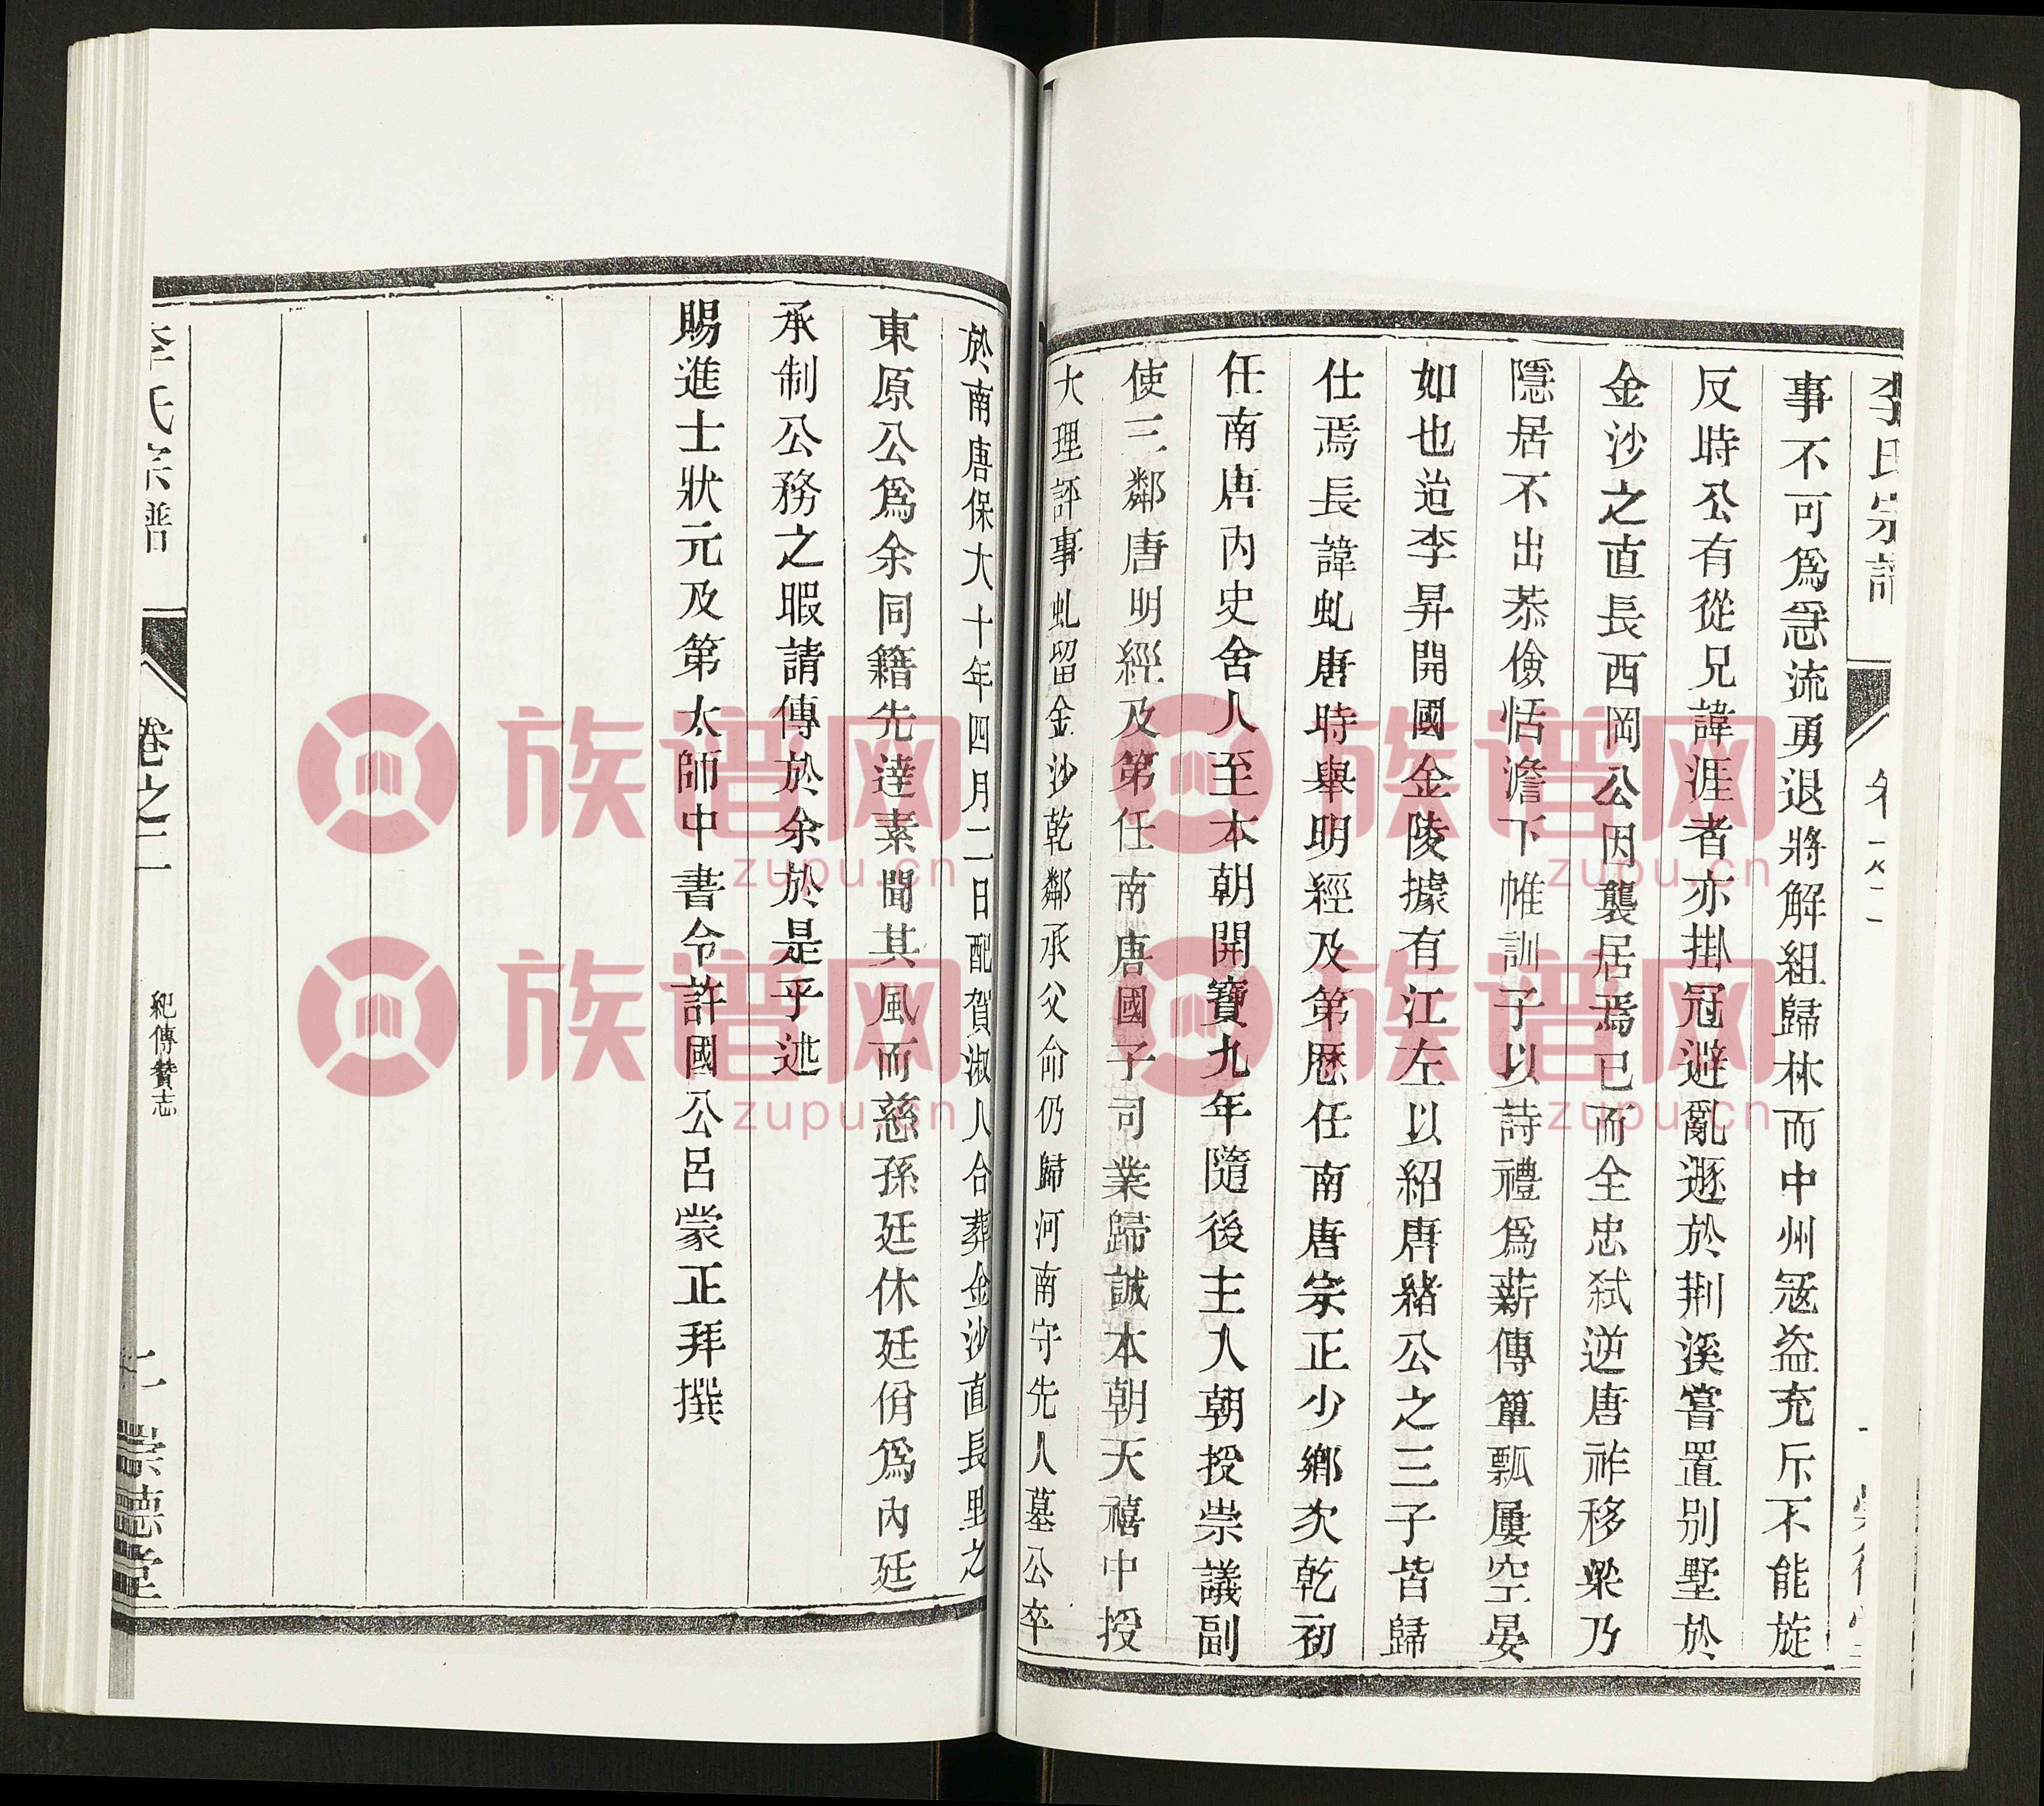 李氏宗譜
事不可爲急流勇退將解組歸林而中州冦盜充斥不能旋
反時公有從兄諱涯者亦掛冠避亂遯於荆溪嘗置别墅於
金沙之直長西岡公因襲居焉已而全忠弑逆唐祚移梁乃
隱居不出恭儉恬澹下帷訓子以詩禮爲薪傳簞瓢屢空晏
如也迨李昇開國金陵據有江左以紹唐緒公之三子皆歸
仕焉長諱虬唐時舉明經及第歴任南唐宗正少鄉次乾初
任南唐内史舍人至本朝開寶九年隨後主入朝授崇議副
使三鄰唐明經及第任南唐國子司業歸誠本朝天禧中授
大理評事虬留金沙乾鄰承父命仍歸河南守先人墓公卒
於南唐保大十年四月二日配賀淑人合葬金沙直長里之
東原公爲余同籍先達素聞其風而慈孫廷休廷俏爲内廷
承制公務之暇請傳於余於是乎述
賜進士狀元及第太師中書令許國公呂蒙正拜撰
李氏宗譜
卷之二
紀傳贊志
崇德堂
族谱网
zupu.cn
族谱网
zupu.cn
族谱网
zupu.cn
族谱网
zupu.cn